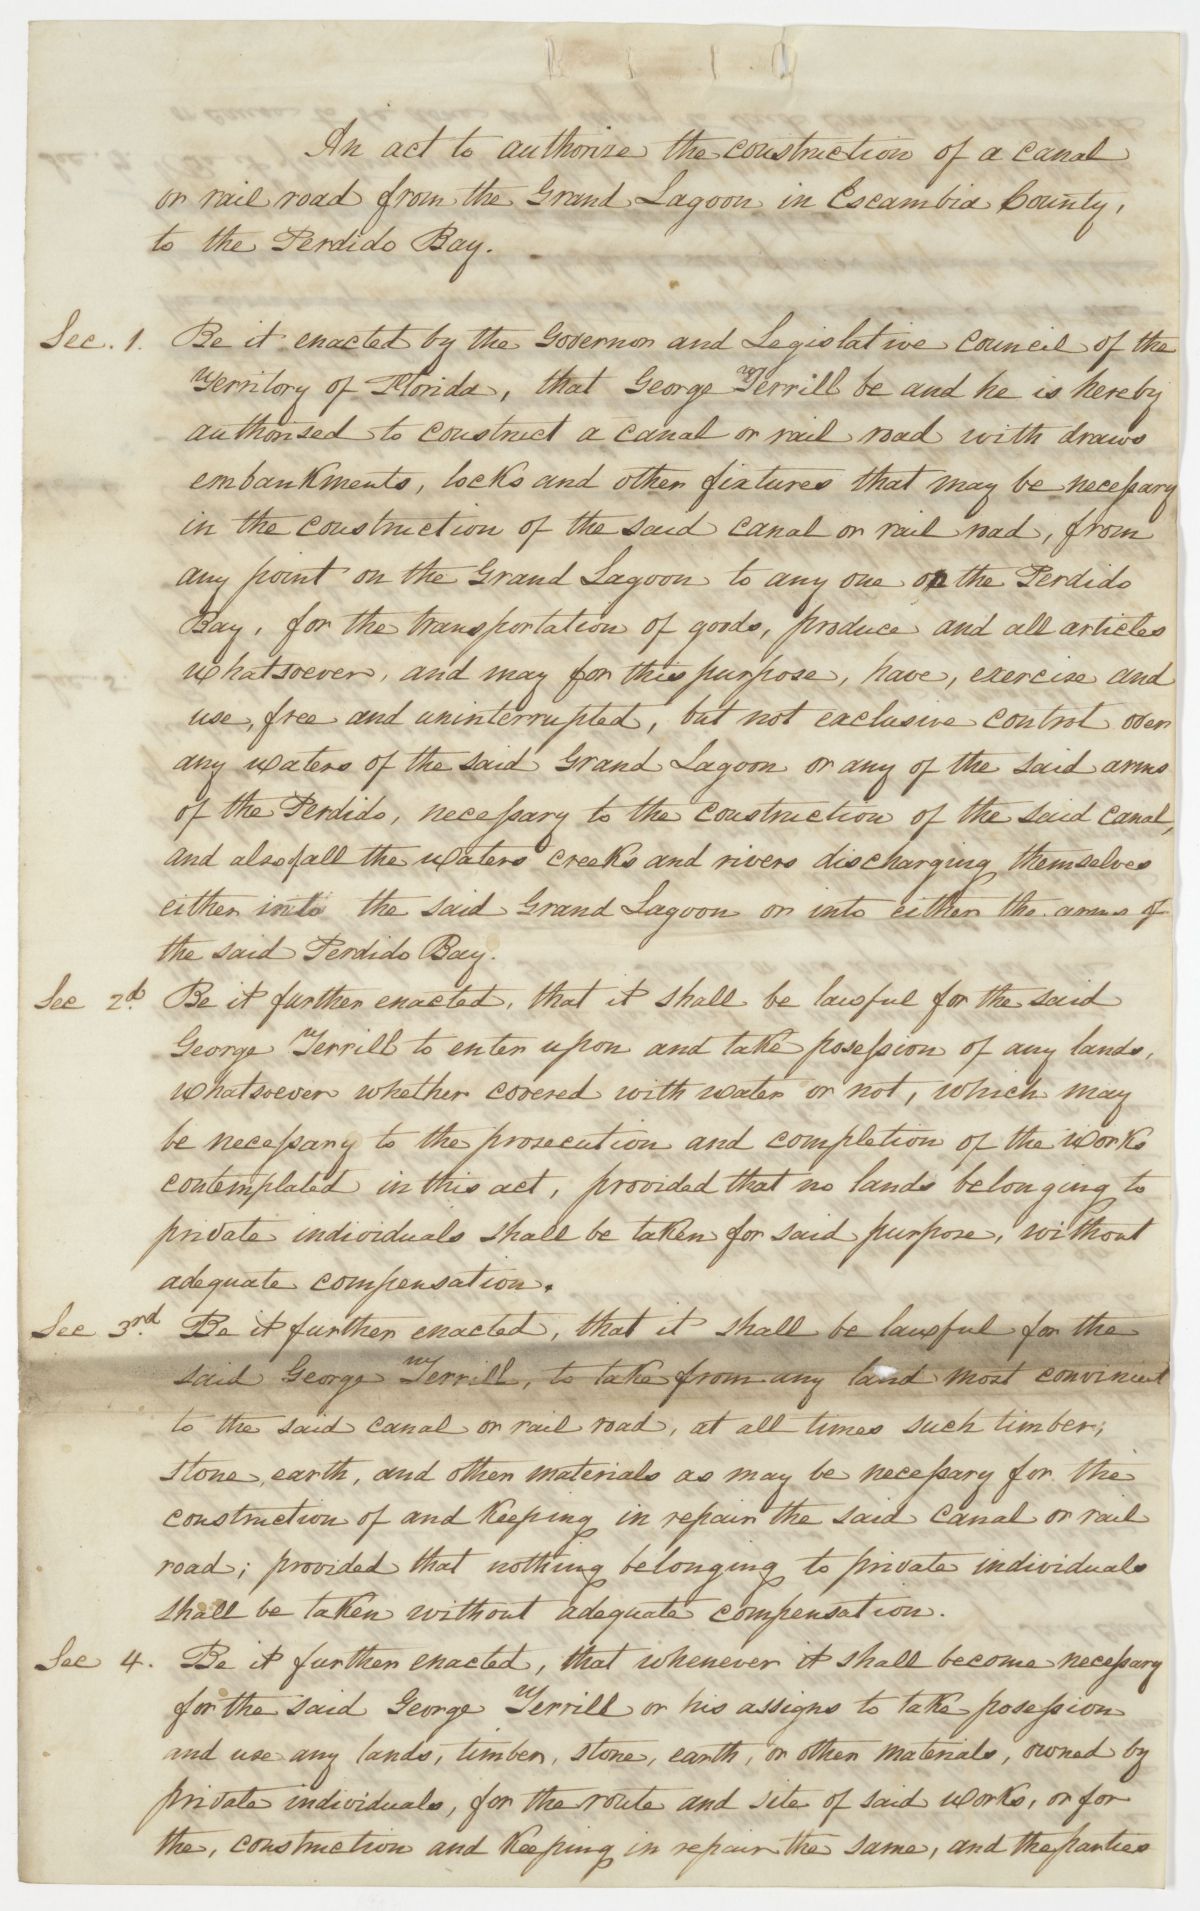 An act to authorize the construction of a canal
or rail road from the Grand Lagoon in Escambia County,
to the Perdido Bay.
Sec. 1. Be it enacted by the Governor and Legislative Council of the
Territory of Florida, that George Terrill be and he is hereby
authorised to construct a canal or rail road with draws
embankments, locks and other fixtures that may be necessary
in the construction of the said canal or rail road, from
any point on the Grand Lagoon to any one on the Perdido
Bay, for the transportation of goods, produce and all articles
whatsoever, and may for this purpose, have, exercise and
use, free and uninterrupted, but not exclusive control over
any waters of the said Grand Lagoon or any of the said arms
of the Perdido, necessary to the construction of the said canal,
and also of all the waters creeks and rivers discharging themselves
either into the said Grand Lagoon or into either the arms of
the said Perdido Bay.
Sec 2d. Be it further enacted, that it shall be lawful for the said
George Terrill to enter upon and take posession of any lands,
whatsoever whether covered with water or not, which may
be necessary to the prosecution and completion of the works
contemplated in this act, provided that no lands belonging to
private individuals shall be taken for said purpose, without
adequate compensation.
Sec 3rd. Be it further enacted, that it shall be lawful for the
said George Terrill, to take from any land most convinient
to the said canal or rail road, at all times such timber,
stone, earth, and other materials as may be necessary for the
construction of and keeping in repair the said canal or rail
road; provided that nothing belonging to private individuals
shall be taken without adequate compensation.
Sec 4. Be it further enacted, that whenever it shall become necessary
for the said George Terrill or his assigns to take posession
and use any lands, timber, stone, earth, or other materials, owned by
private individuals, for the route and site of said works, or for
the, construction and keeping in repair the same, and the parties